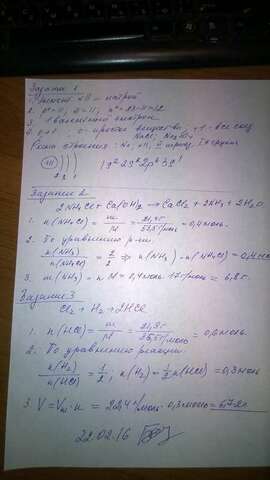 Задание 1
1. Элемент +11 – натрий
2. p⁺ = 11, ē = 11, n° = 23-11=12
3. 1 валентный электрон
0 - простое вещество, +1 - все соед.
NaCl, Na₂SO₄
+11 ) ) ) 1s² 2s² 2p⁶ 3s¹
2 8 1
Задание 2
2NH₄Cl + Ca(OH)₂ → CaCl₂ + 2NH₃ + 2H₂O
1. n(NH₄Cl) = m/M = 21,4г/53,5г/моль = 0,4моль.
2. По уравнению р-ии
n(NH₃)/n(NH₄Cl) = 2/2 ⇒ n(NH₃) = n(NH₄Cl) = 0,4
3. m(NH₃) = n·M = 0,4моль·17г/моль = 6,8г.
Задание 3
Cl₂ + H₂ → 2HCl
1. n(HCl) = m/M = 21,9г/36,5г/моль = 0,6моль.
2. По уравнению реакции
n(H₂)/n(HCl) = 1/2; n(H₂) = 1/2 n(HCl) = 0,3моль
3. V = Vm · n = 22,4л/моль · 0,3моль = 6,72л.
22.02.16